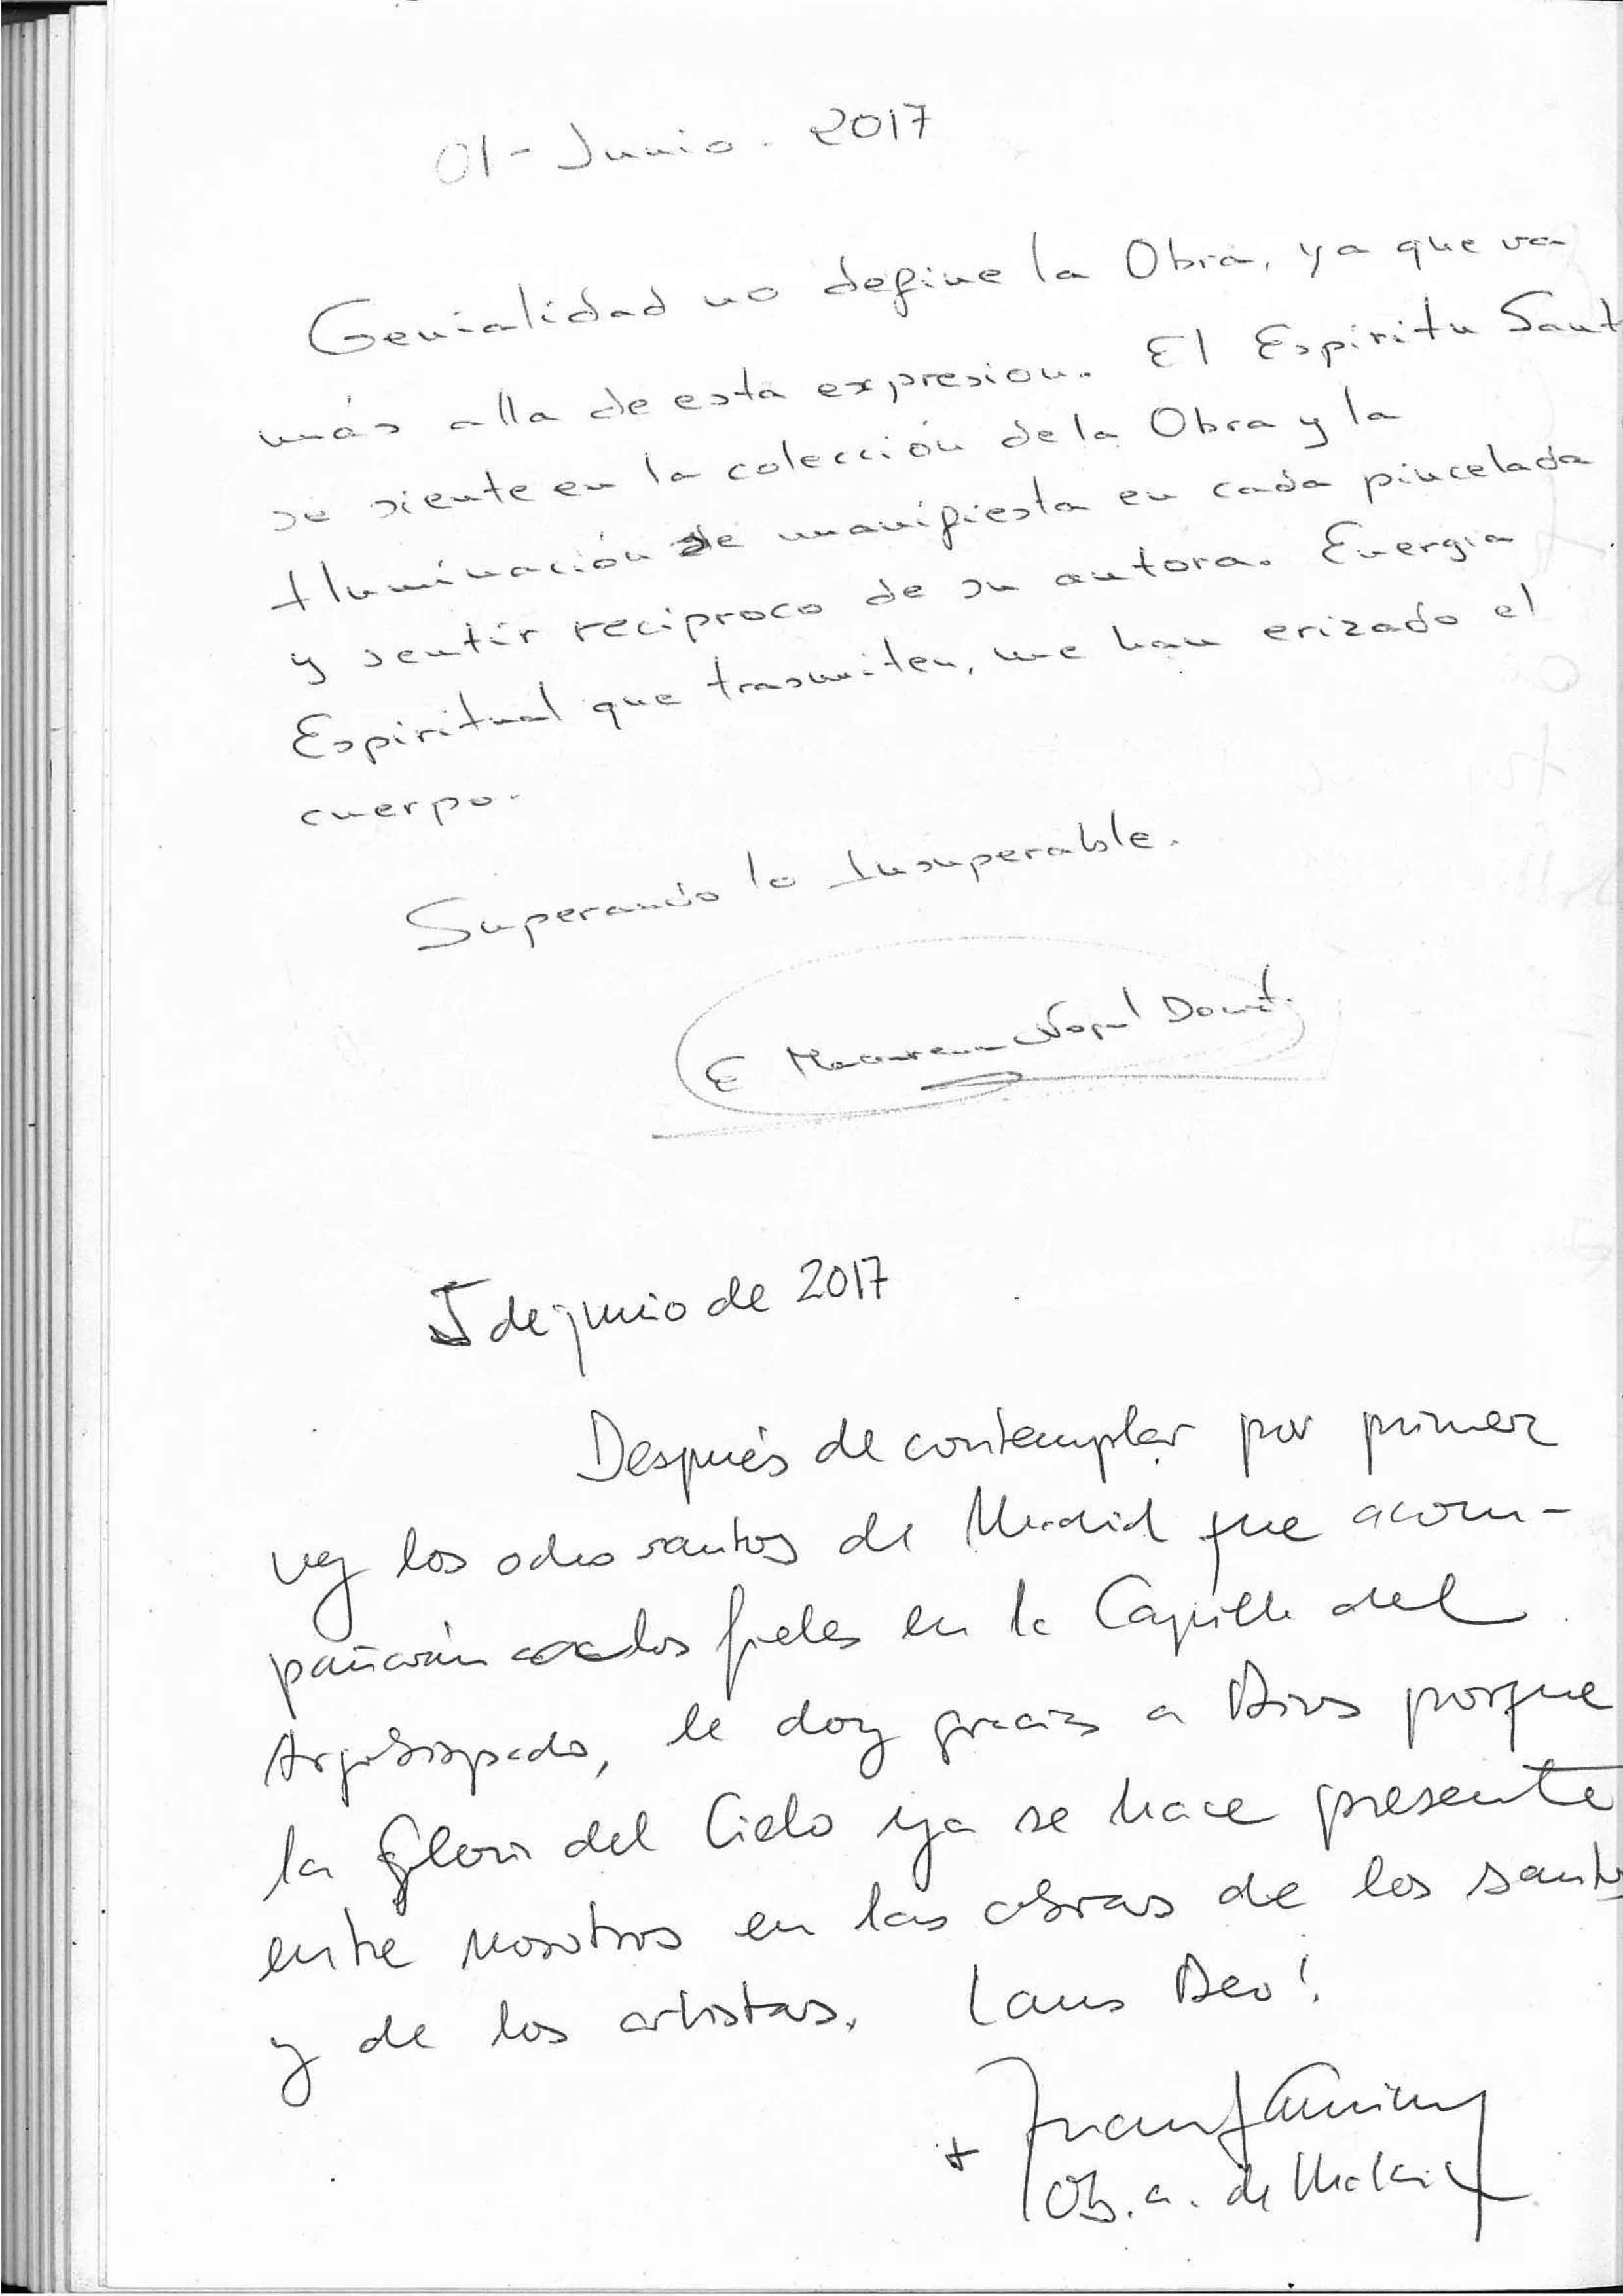 01 - Junio. 2017
Genialidad no define la Obra, ya que va
más alla de esta expresion. El Espiritu Sant
se siente en la colección de la Obra y la
Iluminación se manifiesta en cada pincelada
y sentir reciproco de su autora. Energia
Espiritual que trasmiten, me han erizado el
cuerpo.
Superando lo Insuperable.
E Macarena
5 de junio de 2017
Después de contemplar por primera
vez los ocho santos de Madrid que acom-
pañarán a los fieles en la Capilla del
Arzobispado, le doy gracias a Dios porque
la gloria del Cielo ya se hace presente
entre nosotros en las obras de los santos
y de los artistas. Laus Deo!
+ Juan
Ob. a. de Madrid